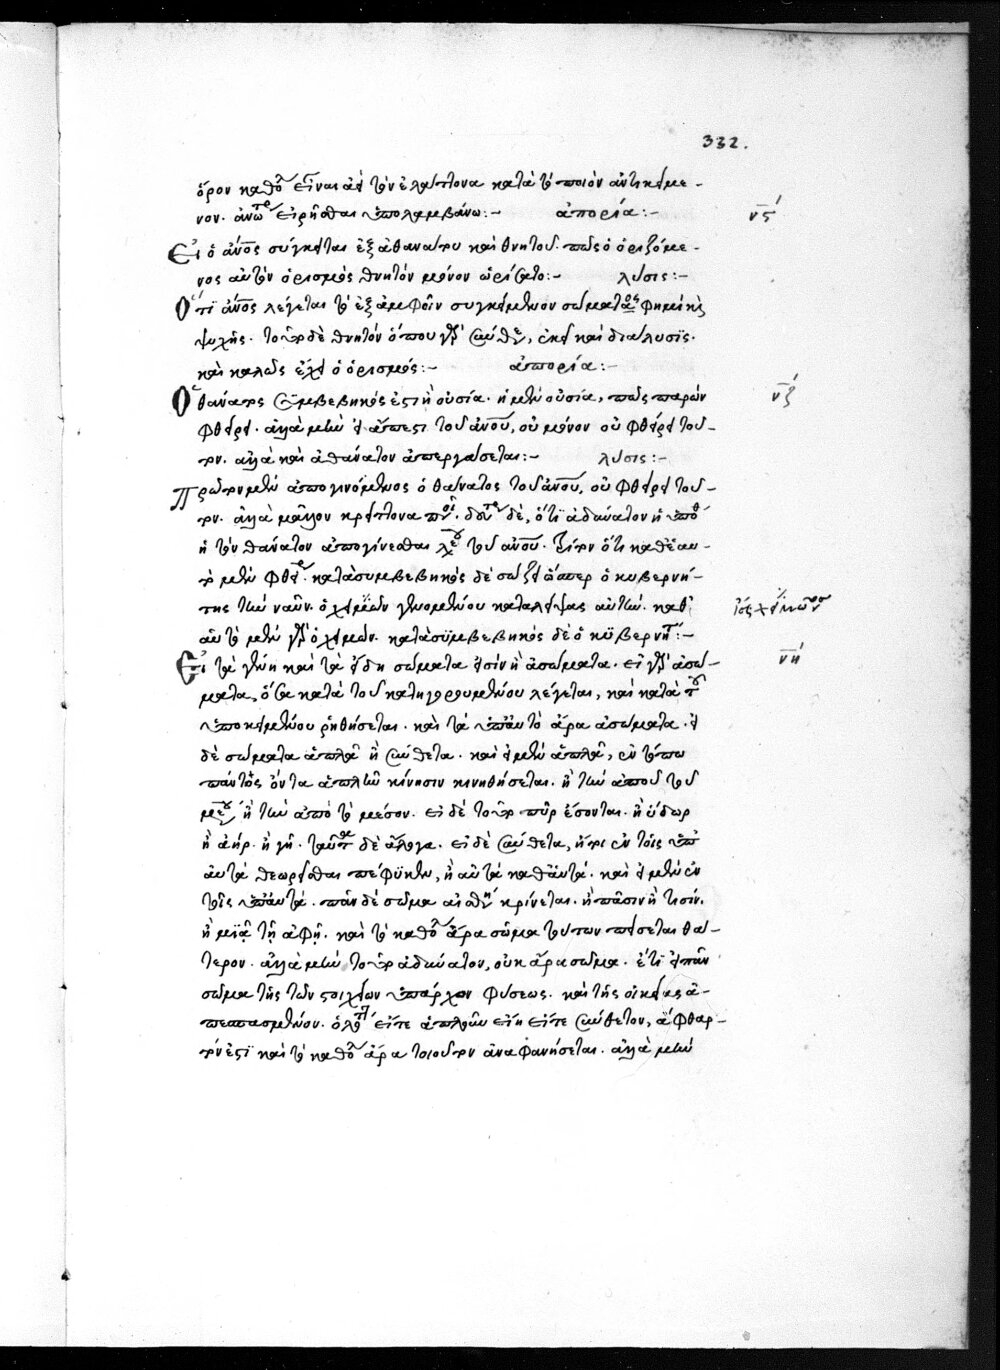 332.
ὅρον καθὸ εἶναι ἀεὶ τὸν ἐλάττονα κατὰ τὸ ποιὸν ἀντικείμε-
νον. ἀνω εἰρῆσθαι ὑπολαμβάνω:- ἀπορία:- νς΄
Εἰ ὁ ἄνος σύγκειται ἐξ ἀθανάτου καὶ θνητοῦ. πῶς ὁ ὁριζόμε-
νος αὐτὸν ὁρισμὸς θνητὸν μόνον ὡρίσατο:- λύσις:-
Ὅτι ἄνος λέγεται τὸ ἐξ ἀμφοῖν συγκείμενον σώματος φημὶ καὶ
ψυχῆς. τοῦτο δὲ θνητόν ὅπου γὰρ σύνθε, ἐκεῖ καὶ διάλυσις.
καὶ καλῶς ἔχει ὁ ὁρισμός:- ἀπορία:- νζ΄
Ὁ θάνατος συμβεβηκός ἐστι ἢ οὐσία. εἰ μὲν οὐσία, πῶς παρὼν
φθείρει. ἀλλὰ μὴν εἰ ἄπεστι τοῦ ἄνου, οὐ μόνον οὐ φθείρει τοῦ-
τον. ἀλλὰ καὶ ἀθάνατον ἀπεργάσεται:- λύσις:-
Πρῶτον μὲν ἀπογινόμενος ὁ θάνατος τοῦ ἄνου, οὐ φθείρει τοῦ-
τον. ἀλλὰ μᾶλλον κρείττονα ποι. δευτε δὲ, ὅτι ἀδύνατον
ἢ τὸν θάνατον ἀπογίνεσθαι τοῦ ἄνου. τρίτον ὅτι καθ' ἑαυ-
τὸ μὲν φθει. κατὰ συμβεβηκὸς δὲ σώζει ὥσπερ ὁ κυβερνή-
της τὴν ναῦν. ὁ χειμὼν γινομένου καταλείψας αὐτήν. καθ'
αὑτὸ μὲν γὰρ ὁ χειμών. κατὰ συμβεβηκὸς δὲ ὁ κυβερνήτ:-
Εἰ τὰ γένη καὶ τὰ εἴδη σώματα εἰσὶν ἢ ἀσώματα. εἰ γὰρ ἀσώ- νη΄
ματα, ὅσα κατὰ τοῦ κατηγορουμένου λέγεται, καὶ κατὰ τοῦ
ὑποκειμένου ῥηθήσεται. καὶ τὰ ὑπ' αὐτὸ ἄρα ἀσώματα. εἰ
δὲ σώματα ἁπλᾶ ἢ σύνθετα. καὶ εἰ μὲν ἁπλᾶ, ἐν τόπω
πάντως ὄντα ἁπλῆν κίνησιν κινηθήσεται. ἢ τὴν ἀπὸ τοῦ
μέσου ἢ τὴν ἀπὸ τὸ μέσον. εἰ δὲ τοῦτο πῦρ ἔσονται. ἢ ὕδωρ
ἢ ἀήρ. ἢ γῆ. ταῦτα δὲ ἄλογα. εἰ δὲ σύνθετα, ἤτοι ἐν τοῖς ὑπ'
αὐτὰ θεωρεῖσθαι πέφυκεν, ἢ αὐτὰ καθ' αὑτά. καὶ εἰ μὲν ἐν
τοῖς ὑπ' αὐτά. πᾶν δὲ σῶμα αἰσθή κρίνεται. ἢ πᾶσιν ἢ τισίν.
ἢ μιᾷ τῇ ἁφῇ. καὶ τὸ καθὸ ἄρα σῶμα τούτων πεσεῖται θα-
τερον. ἀλλὰ μὴν τοῦτο ἀδύνατον, οὐκ ἄρα σῶμα. ἔτι εἰ πᾶν
σῶμα τῆς τῶν στοιχείων ὑπάρχον φύσεως. καὶ τῆς οἰκείας ἀ-
πεσπασμένον. εἴτε ἁπλοῦν εἴη εἴτε σύνθετον, ἄφθαρ-
τόν ἐστι καὶ τὸ καθὸ ἄρα τοιοῦτον ἀναφανήσεται. ἀλλὰ μὴν